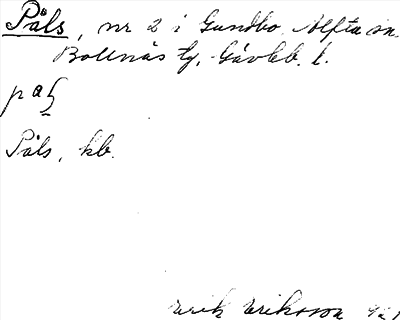 Påls, nr 2 i Gundbo Alfta sn.
Bollnäs tg, Gävleb. l.
Påls, kb.
Erik Eriksson